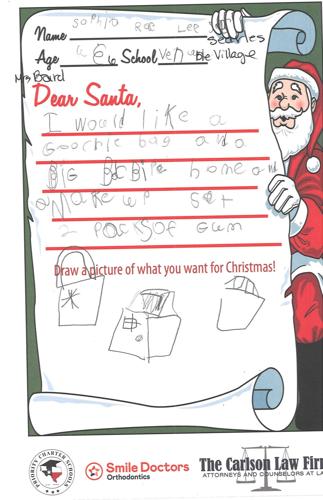 Name Sophia Rae Lee
Searles
Age 6 School Venable Village
Mrs Baird
Dear Santa,
I would like a
Goochie bag and a
Big Bcbire home and
a Make up set
2 packs of gum
Draw a picture of what you want for Christmas!
PRIORITY CHARTER SCHOOLS
Smile Doctors
Orthodontics
The Carlson Law Firm
ATTORNEYS AND COUNSELORS AT LA